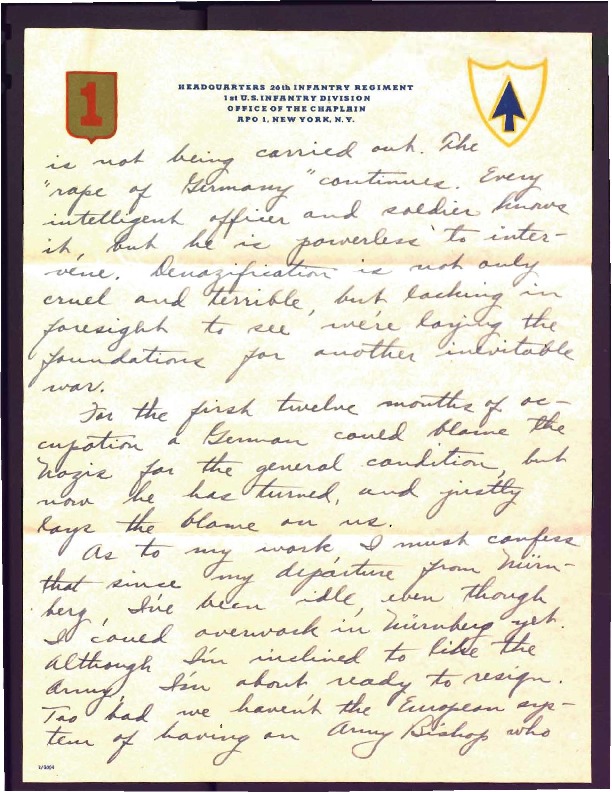 1
HEADQUARTERS 26th INFANTRY REGIMENT
1st U.S. INFANTRY DIVISION
OFFICE OF THE CHAPLAIN
APO 1, NEW YORK, N.Y.
is not being carried out. The
"rape of Germany" continues. Every
intelligent officer and soldier knows
it, but he is powerless to inter-
vene. Denazification is not only
cruel and terrible, but lacking in
foresight to see we're laying the
foundations for another inevitable
war.
For the first twelve months of oc-
cupation a German could blame the
Nazis for the general condition, but
now he has turned, and justly
lays the blame on us.
As to my work, I must confess
that since my departure from Nürn-
berg, I've been idle, even though
I could overwork in Nürnberg yet.
Although I'm inclined to like the
Army, I'm about ready to resign.
Too bad we haven't the European sys-
tem of having an Army Bishop who